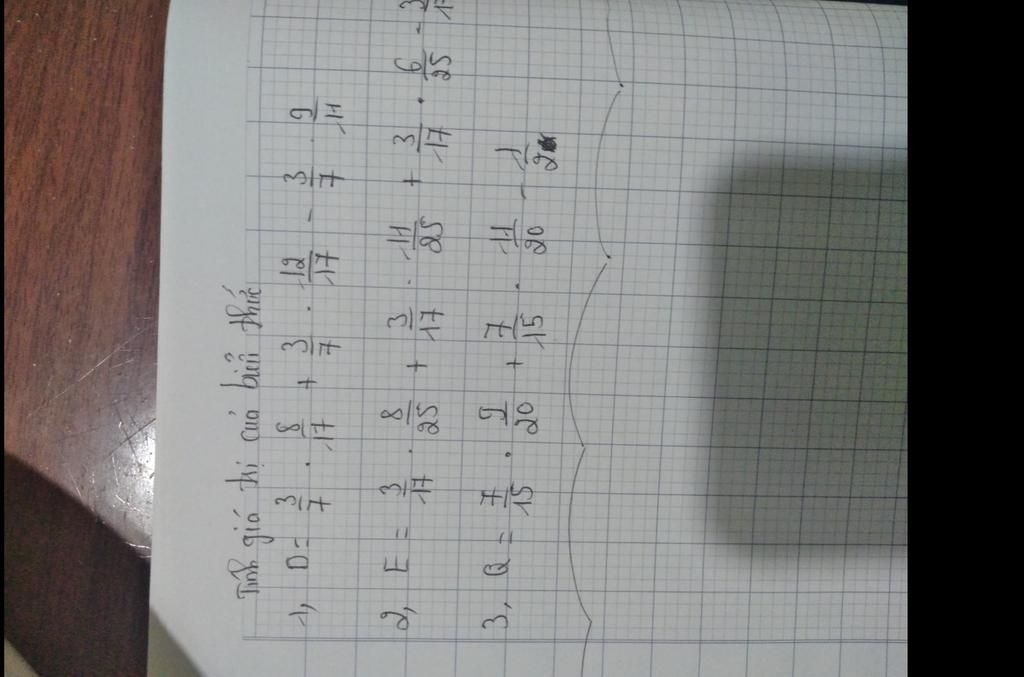 Tính giá trị của biểu thức
1, D = 3/7 . 8/17 + 3/7 . 12/17 - 3/7 . 9/11
2, E = 3/17 . 8/25 + 3/17 . 11/25 + 3/17 . 6/25 - 3/1
3, Q = 7/15 . 9/20 + 7/15 . 11/20 - 1/2